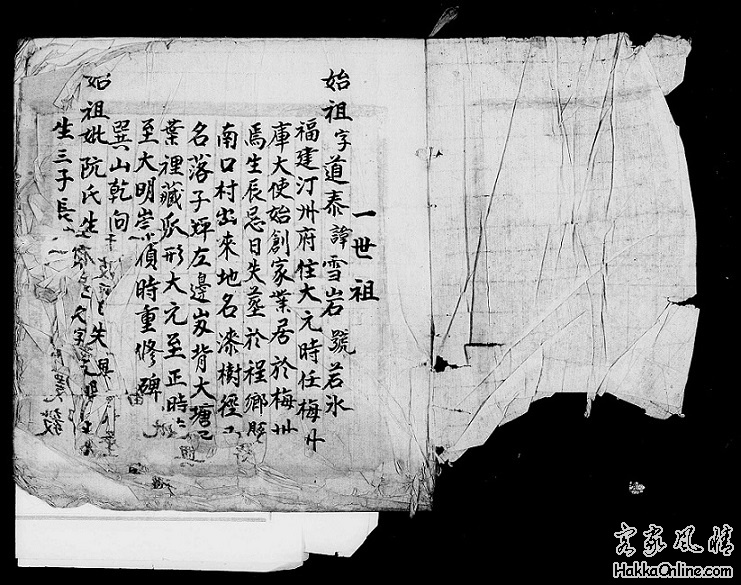 一世祖
始祖字道泰諱雪岩號若氷
福建汀州府住大元時任梅州
庫大使始創家業居於梅州
焉生辰忌日失塟於程鄉縣
南口村出來地名漆樹徑
名落子坪左邊岌背大塘
葉裡藏瓜形大元至正時
至大明崇偵時重修碑
巽山乾向
始祖妣阮氏生
生三子長
客家风情
HakkaOnline.com